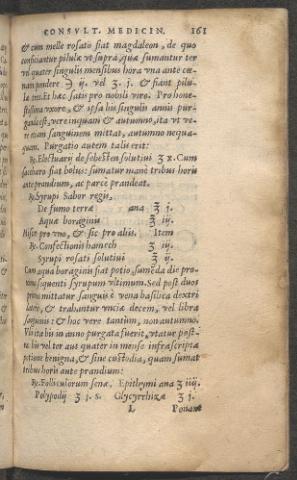 CONSVLT. MEDICIN. 161
& cum melle rosato fiat magdaleon, de quo
conficiantur pilulæ vt supra, quæ sumantur ter
vel quater singulis mensibus hora vna ante cœ-
nam pondere ℈ ij. vel ʒ. j. & fiant pilu-
læ Et hæc satis pro nobili viro. Pro hone-
stissima vxore, & ipsa bis singulis annis pur-
ganda est, vere inquam & autumno, ita vt ve-
re etiam sanguinem mittat, autumno nequa-
quam. Purgatio autem talis erit:
℞. Electuarij de sebesten solutiui ʒ x. Cum
saccaro fiat bolus: sumatur manè tribus horis
ante prandium, ac parcè prandeat.
℞. Syrupi Sabor regis,
De fumo terræ ana ℥ j.
Aquæ boraginis ℥ iij.
Misce pro vno, & sic pro aliis. Item
℞. Confectionis hamech ʒ iij.
Syrupi rosati solutiui ℥ ij.
Cum aqua boraginis fiat potio, sumēda die pro-
ximo sequenti syrupum vltimum. Sed post duos
mittatur sanguis è vena basilica dextri
lateris, & trahantur vnciæ decem, vel libra
sanguinis: & hoc vere tantùm, non autumno.
Vbi ita bis in anno purgata fuerit, vtatur poste-
a bis vel ter aut quater in mense infrascripta
potione benigna, & sine custodia, quam sumat
tribus horis ante prandium:
℞. Folliculorum senæ, Epithymi ana ʒ iiij.
Polypodij ʒ j. s. Glycyrrhizæ ʒ j.
L Ponant